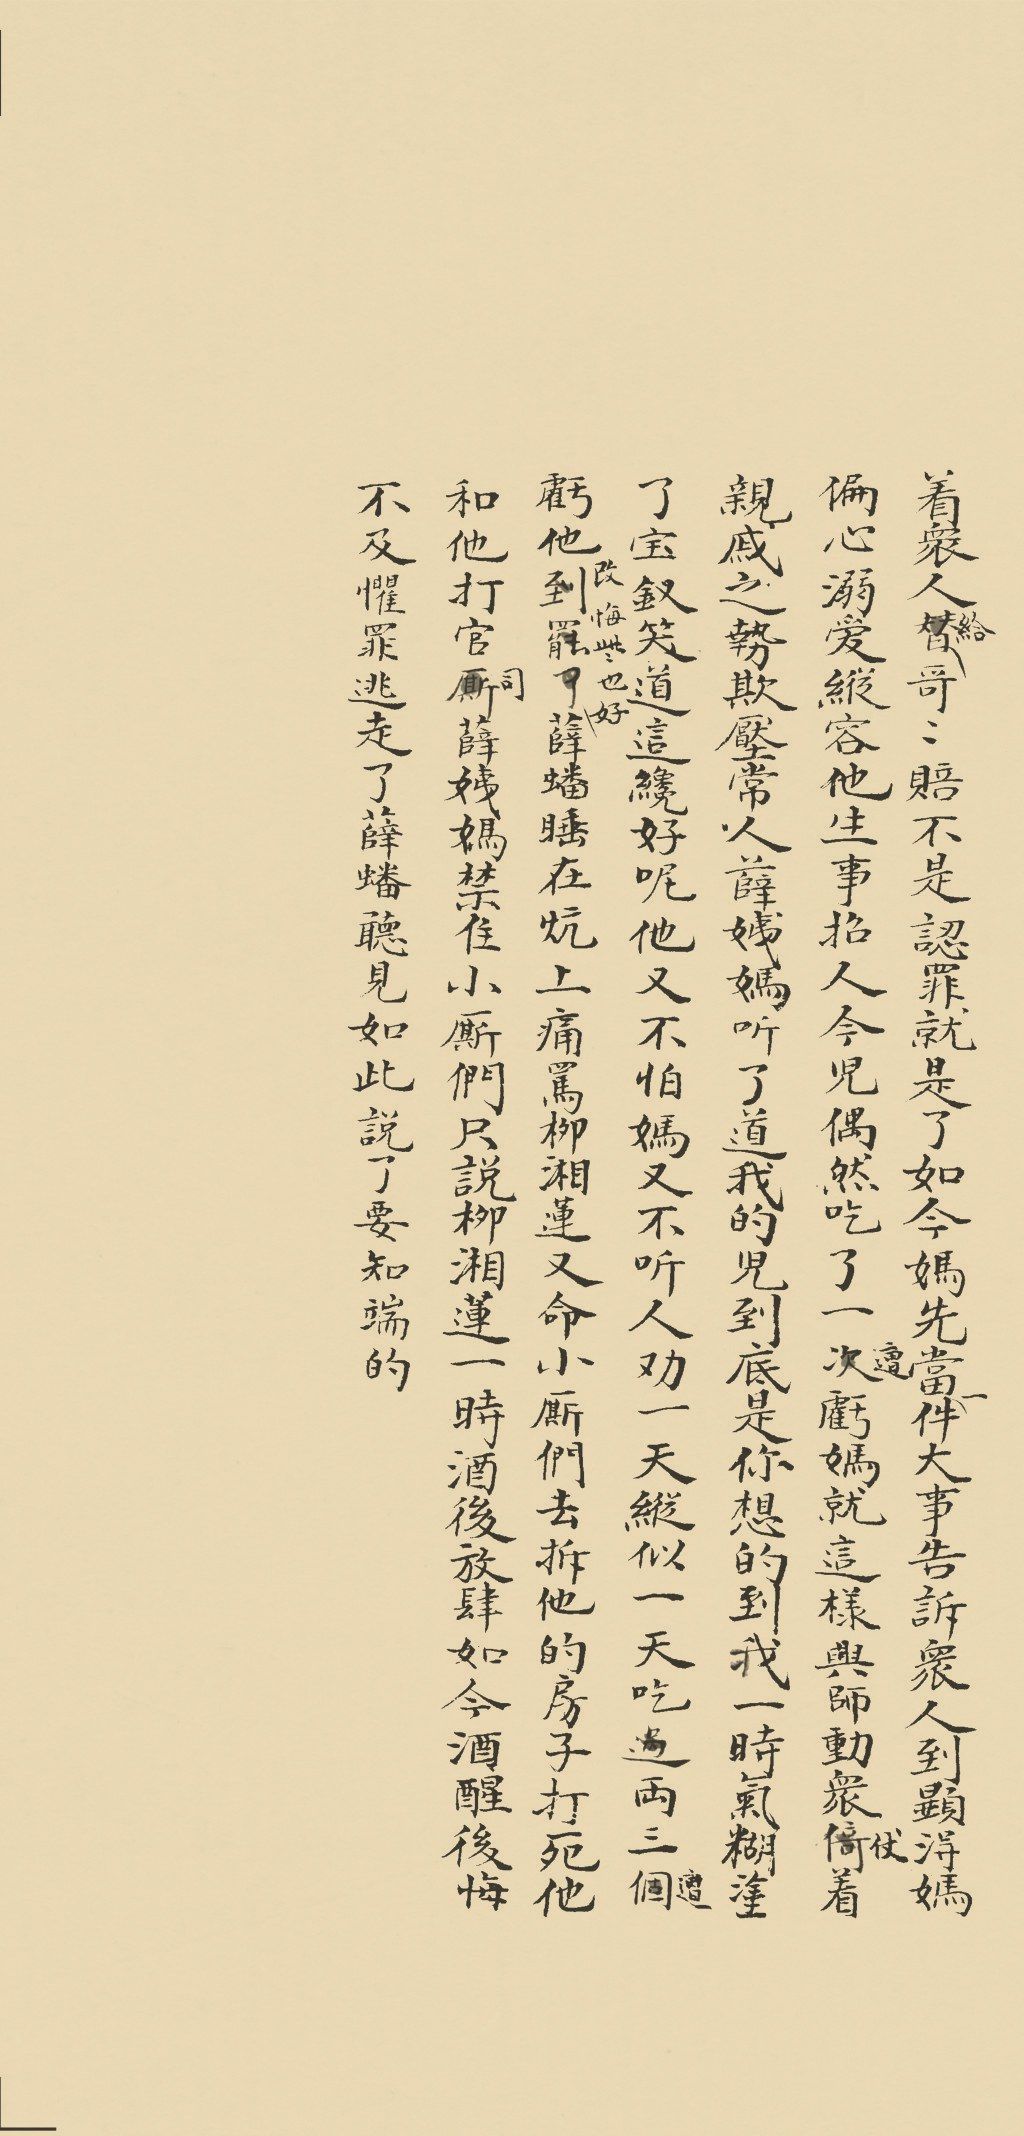 着衆人替給哥〻賠不是認罪就是了如今媽先當一件大事告訴衆人到顯得媽
偏心溺爱縱容他生事招人今児偶然吃了一次遭虧媽就這樣興師動衆倚仗着
親戚之勢欺壓常人薛姨媽听了道我的児到底是你想的到我一時氣糊塗
了宝釵笑道這纔好呢他又不怕媽又不听人劝一天縱似一天吃過両三個遭
虧他到罷了改悔些也好薛蟠睡在炕上痛罵柳湘蓮又命小厮們去拆他的房子打死他
和他打官厮司薛姨媽禁住小厮們只説柳湘蓮一時酒後放肆如今酒醒後悔
不及懼罪逃走了薛蟠聽見如此説了要知端的